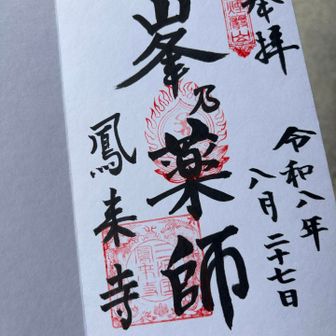 奉拝
令和八年
八月二十七日
峯乃薬師
鳳来寺